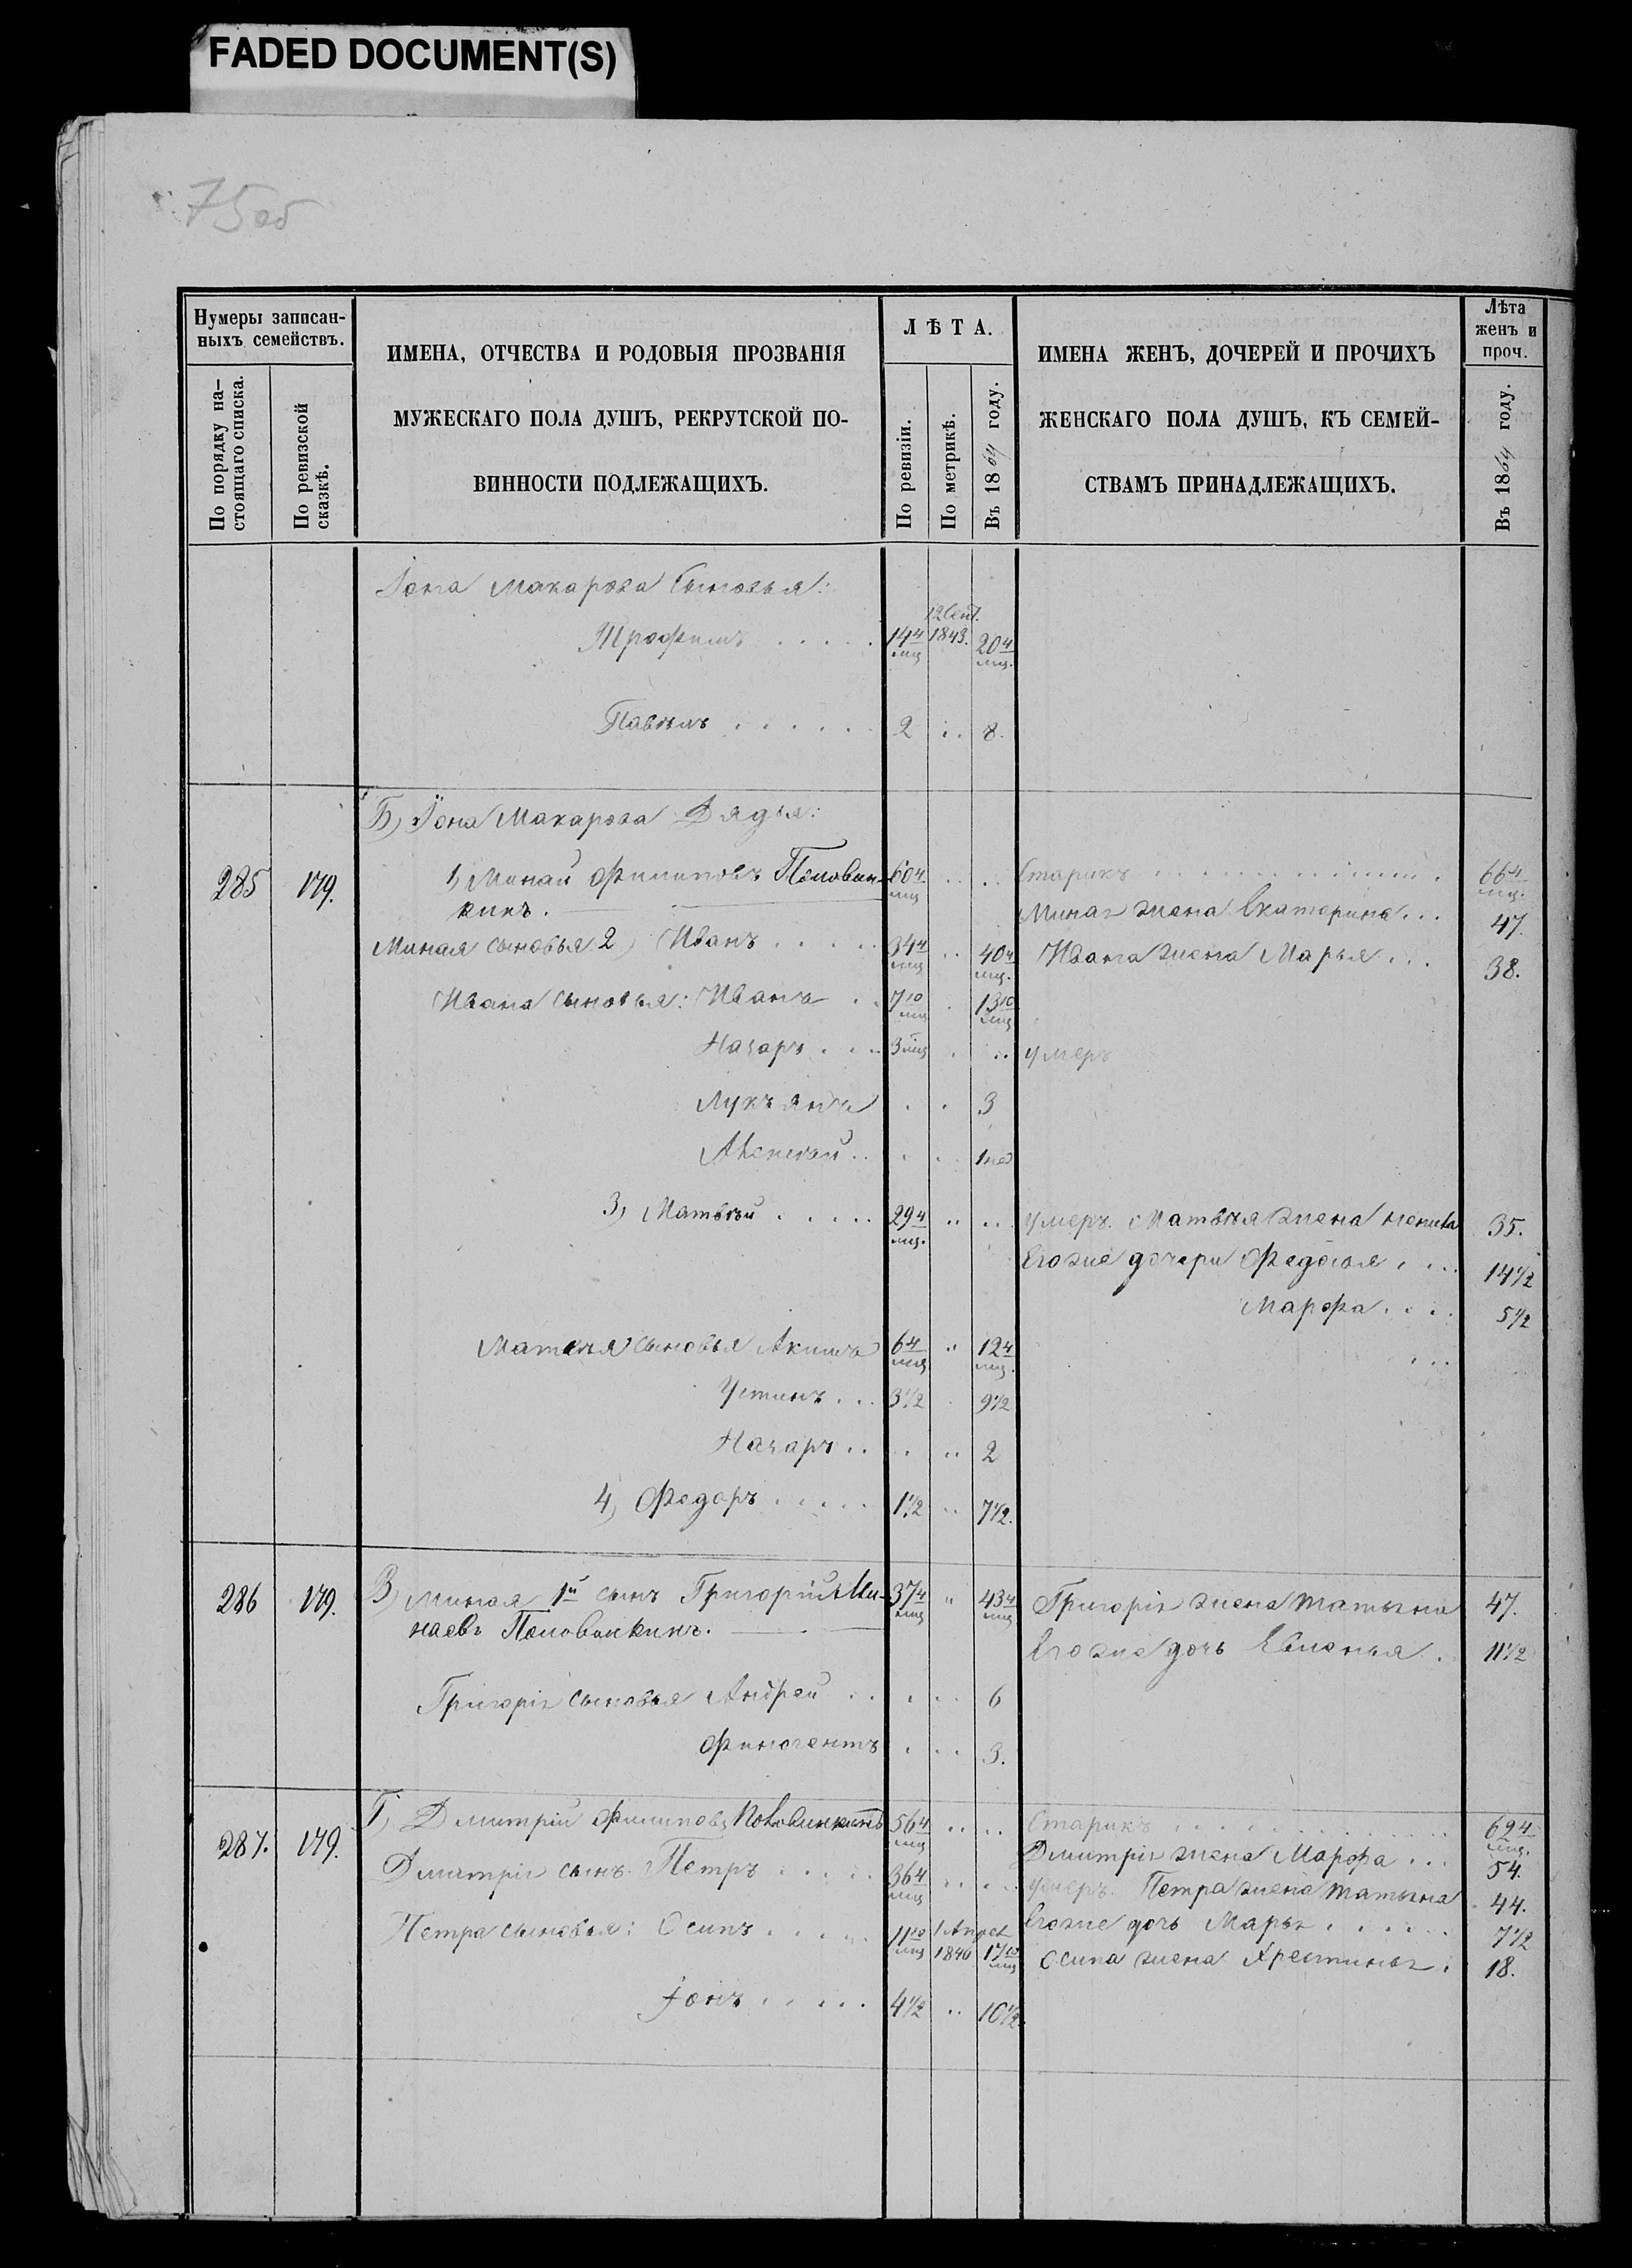 FADED DOCUMENT(S)
75об
Нумеры записан-
ныхъ семействъ.
По порядку на-
стоящаго списка.
По ревизской
сказкѣ.
ИМЕНА, ОТЧЕСТВА И РОДОВЫЯ ПРОЗВАНІЯ
МУЖЕСКАГО ПОЛА ДУШЪ, РЕКРУТСКОЙ ПО-
ВИННОСТИ ПОДЛЕЖАЩИХЪ.
ЛѢТА.
По ревизіи.
По метрикѣ.
Въ 1864 году.
ИМЕНА ЖЕНЪ, ДОЧЕРЕЙ И ПРОЧИХЪ
ЖЕНСКАГО ПОЛА ДУШЪ, КЪ СЕМЕЙ-
СТВАМЪ ПРИНАДЛЕЖАЩИХЪ.
Лѣта
женъ и
проч.
Въ 1864 году.
Iона Макарова Сыновья:
12 Сент.
Трофимъ . . . . . 14 4/мц 1843. 20 4/мц.
Павелъ . . . . . . 2 .. 8.
Б) Iона Макарова Дядья:
285 179. 1, Минай Филиповъ Половин- 60 4/мц .. .. Старикъ . . . . . . 66 4/мц.
кинъ. Миная жена Екатерина... 47.
Миная сыновья 2) Иванъ . . . . . 34 4/мц .. 40 4/мц. Ивана жена Марья . . . 38.
Ивана сыновья: Иванъ . . 7 10/мц . 13 10/мц
Назаръ . . . 3 мц . .. умеръ
Лукъянъ . . 3
Алексѣй . . . . 1 нед
3, Матвѣй . . . . . 29 4/мц. .. .. умеръ. Матвѣя жена 35.
Егоже дочери Федосья . . . 14 1/2
Марфа . . . . 5 1/2
Матвѣя сыновья Акимъ 6 4/мц .. 12 4/мц.
Устинъ . . . 3 1/2 . 9 1/2
Назаръ . . . .. 2
4) Федоръ . . . . . 1 1/2 .. 7 1/2.
286 179. В) Миная 1й сынъ Григорій Ми- 37 4/мц .. 43 4/мц Григорія жена Татьяна 47.
наевъ Половинкинъ. Егоже дочь Евгенья . 11 1/2
Григорія сыновья Андрей . . . .. 6
Финогентъ . .. 3.
287. 179. Г) Дмитрій Филиповъ Половинкинъ 56 4/мц .. .. Старикъ . . . . . . 62 4/мц.
Дмитрія жена Марфа . . . 54.
Дмитрія сынъ Петръ . . . . . 36 4/мц .. .. умеръ. Петра жена Татьяна 44.
Егоже дочь Марья . . . . . 7 1/2
Петра сыновья: Осипъ . . . . . 11 10/мц 1846 17 10/мц Осипа жена Хрестинья . 18.
Iонъ . . . . . 4 1/2 .. 10 1/2.